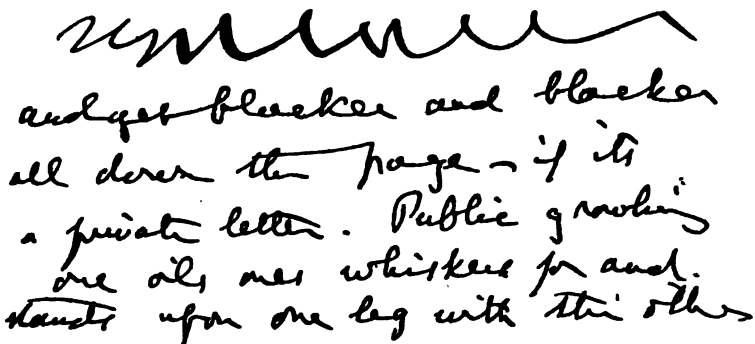 and get blacker and blacker
all down the page – if its
a private letter. Public growling
one oils ones whiskers for and.
stands upon one leg with the other